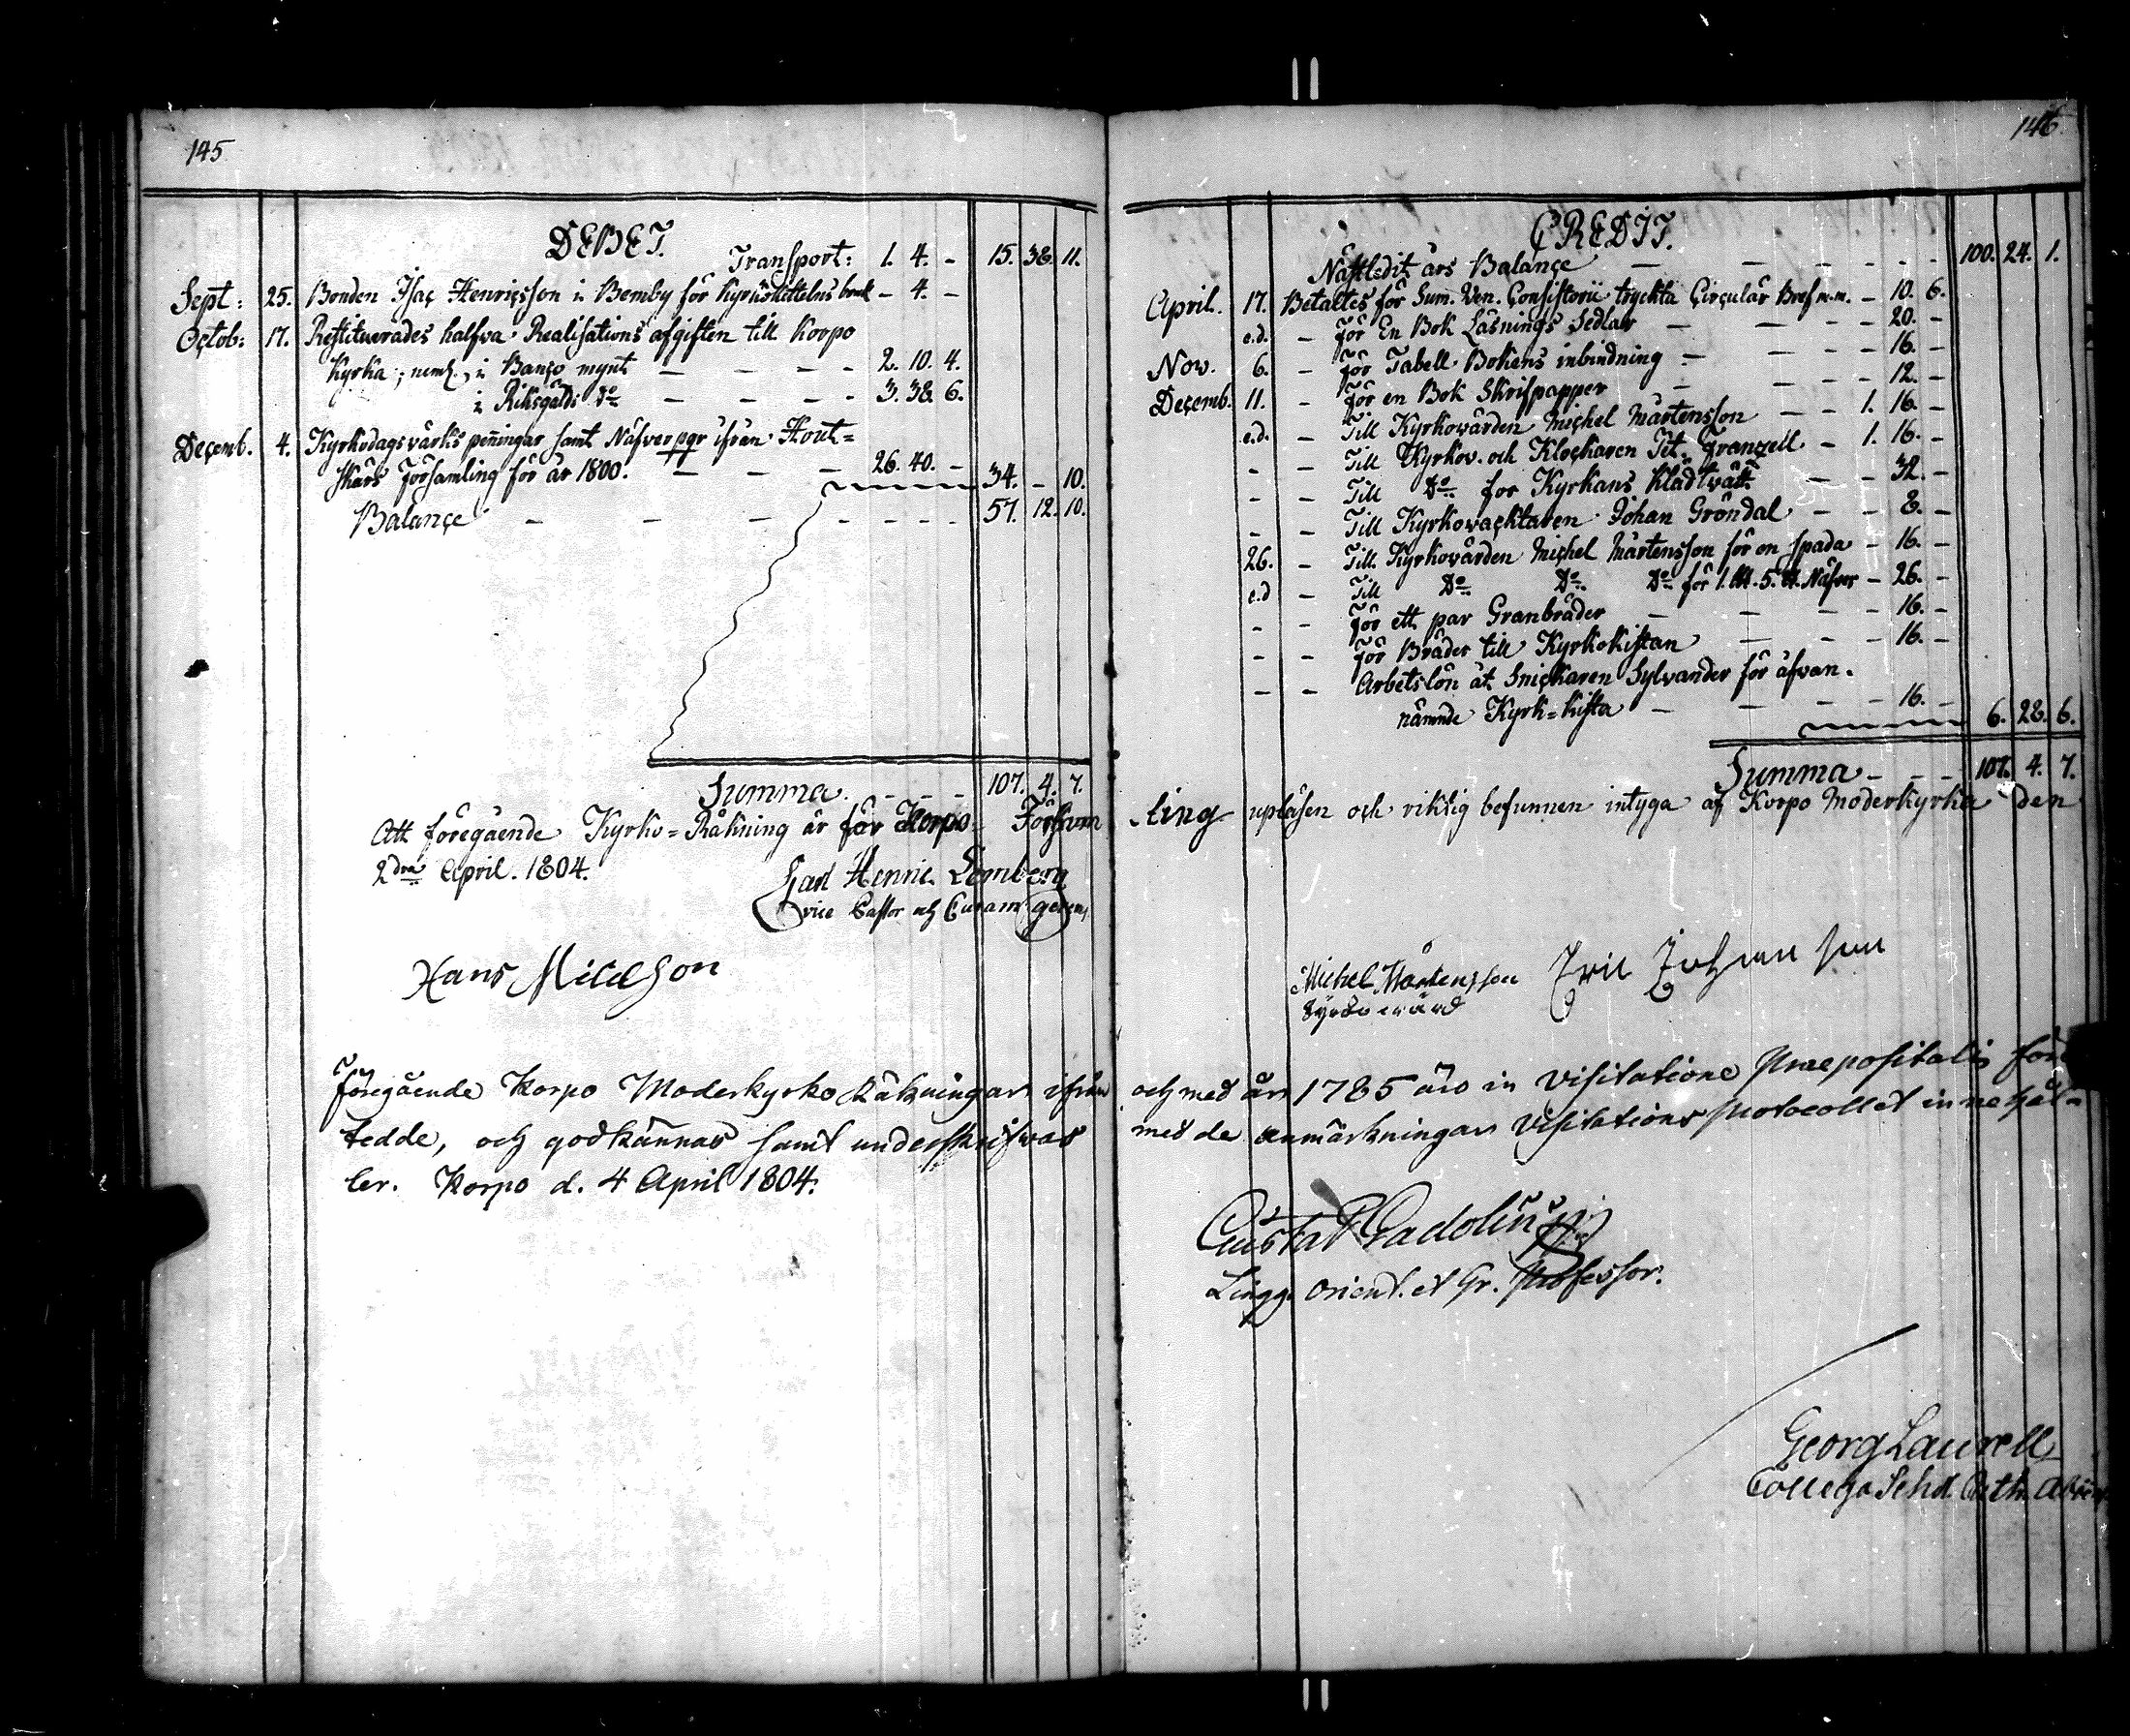 145
DEBET.
Transport: 1. 4. - 15. 38. 11.
Sept: 25. Bonden Isac Henricsson i Bemby för Kyrkokettelns bruk - 4. -
Octob: 17. Restituerades halfwa Realisations afgiften till Korpo
Kyrka; neml. i Banco mynt — — - - 2. 10. 4.
i Riksgälds Do — — - - 3. 38. 6.
Decemb. 4. Kyrkodagsvärks peñingar samt Näfver pgr ifrån Hout=
skärs Församling för år 1800. — — — 26. 40. - 34. - 10.
Balance — — — - - - - 57. 12. 10.
Summa. - - - 107. 4. 7.
Att föregående Kyrko=Räkning är för Korpo Församl
2dra April. 1804.
Carl Henric
vice Pastor och Curam gerens
Hans Mickelson
Föregående Korpo Moderkyrko Räkningar ifrån
tedde, och godkännas samt underskrifwas
ler. Korpo d. 4 April 1804.
146
CREDIT.
Nästledit års Balance — — - - - - 100. 24. 1.
April. 17. Betaltes för Sum. Ven. Consistorii tryckta Circulär Bref m.m. - 10. 6.
e.d. - för En Bok Läsnings Sedlar — — - - 20. -
Nov. 6. - för Tabell Bokens inbindning — — - - 16. -
Decemb. 11. - för en Bok Skrifpapper — - - - 12. -
e.d. - Till Kyrkowärden Michel Mårtensson - - 1. 16. -
- - Till Kyrkov. och Klockaren Tit. Granzell - 1. 16. -
- - Till Do för Kyrkans Klädtvätt - - 32. -
- - Till Kyrkowacktaren Johan Gröndal - - 8. -
26. - Till Kyrkowärden Michel Mårtensson för en spada - 16. -
e.d - Till Do Do Do för 1. 5. Näfver - 26. -
- - för ett par Granbräder — — - - 16. -
- - för Bräder till Kyrkokistan — - - 16. -
- - Arbetslön åt Snickaren Sylvander för äfvan.
nämnde Kyrk=kista — — - - 16. - 6. 28. 6.
Summa - - - 107. 4. 7.
ling upläsen och riktig befunnen intyga af Korpo Moderkyrka den
Michel Mårtensson Eric Johansson
Kyrkowärd
och med år 1785 äro in Visitatione Praepositali före
med de anmärkningar Visitations Protocollet innehål=
Gustaf Gadolin
Lingg. Orient. et Gr. Professor.
Georg Laurell
Collega Schol. Cath. Aboens